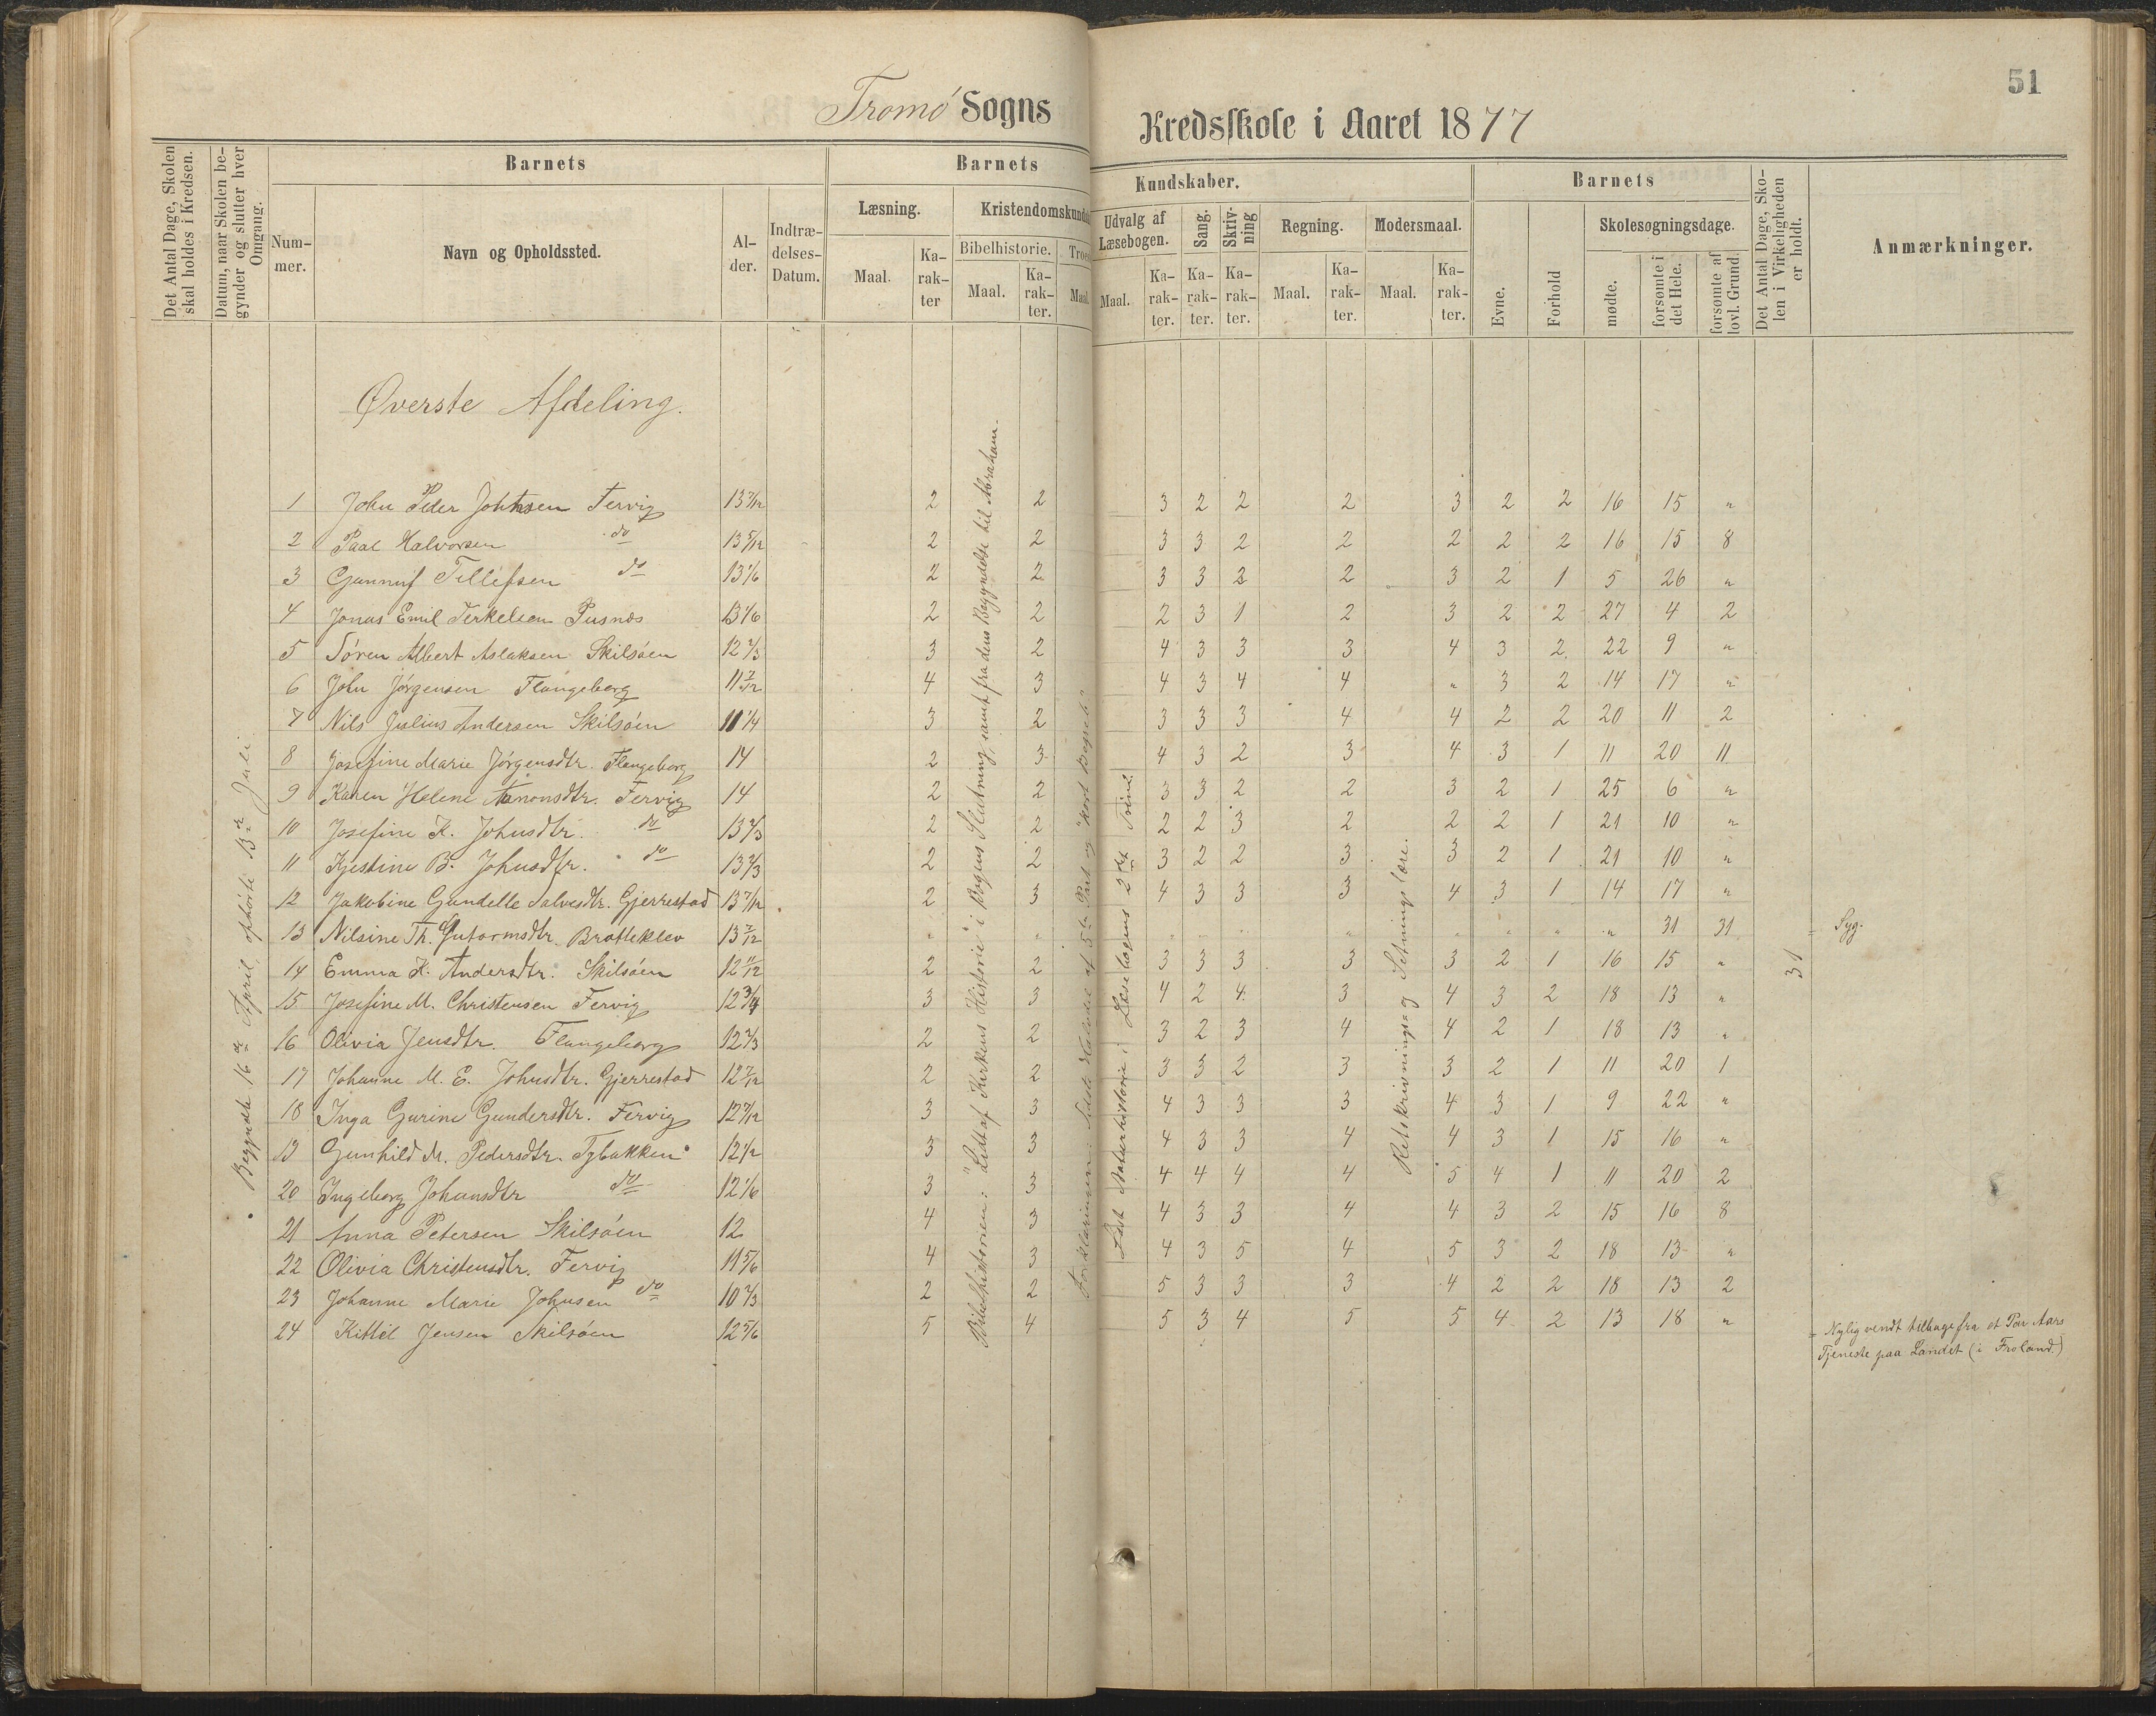 51
Tromø Sogns Kredsskole i Aaret 1877
Det Antal Dage, Skolen skal holdes i Kredsen.
Datum, naar Skolen begynder og slutter hver Omgang.
Barnets
Nummer.
Navn og Opholdssted.
Alder.
Indtrædelses-Datum.
Barnets Kundskaber.
Læsning.
Maal.
Karakter
Kristendomskunds
Bibelhistorie.
Maal.
Karakter.
Troes
Maal.
Udvalg af Læsebogen.
Maal.
Karakter.
Sang.
Karakter.
Skrivning
Karakter.
Regning.
Maal.
Karakter.
Modersmaal.
Maal.
Karakter.
Barnets
Evne.
Forhold
Skolesøgningsdage.
mødte.
forsømte i det Hele.
forsømte af lovl. Grund.
Det Antal Dage, Skolen i Virkeligheden er holdt.
Anmærkninger.
Øverste Afdeling.
Begyndte 16de April, ophørte 13de Juli
Bibelhistorien: "Lidt af Kirkens Historie" i Bogens Slutning, samt fra dens Begyndelse til Abraham.
Forklaringen: Sidste Halvdel af 5te Part og "kort Begreb"
Læst Naturhistorie i Læsebogens 2det Trin.
Retskrivnings- og Sætningslære.
31
1 John Peder Johnsen Fervig 13 7/12 2 2 3 2 2 2 3 2 2 16 15 "
2 Paal Halvorsen do 13 5/12 2 2 3 3 2 2 2 2 2 16 15 8
3 Gunnuf Tellefsen do 13 1/6 2 2 3 3 2 2 3 2 1 5 26 "
4 Jonas Emil Terkelsen Pusnæs 13 1/6 2 2 2 3 1 2 3 2 2 27 4 2
5 Søren Albert Aslaksen Skilsøen 12 2/3 3 2 4 3 3 3 4 3 2 22 9 "
6 John Jørgensen Flangeborg 11 7/12 4 3 4 3 4 4 " 3 2 14 17 "
7 Nils Julius Andersen Skilsøen 11 1/4 3 2 3 3 3 4 4 2 2 20 11 2
8 Josefine Marie Jørgensdtr. Flangeborg 14 2 3 4 3 2 3 4 3 1 11 20 11
9 Karen Helene Aanonsdtr. Fervig 14 2 2 3 3 2 2 3 2 1 25 6 "
10 Josefine K. Johnsdtr. do 13 2/3 2 2 2 2 3 2 2 2 1 21 10 "
11 Kjestine B. Johnsdtr. do 13 2/3 2 2 3 2 2 3 3 2 1 21 10 "
12 Jakobine Gundelle Salvesdtr. Gjerrestad 13 7/12 2 3 4 3 3 3 4 3 1 14 17 "
13 Nilsine Th. Gutormsdtr. Bratteklev 13 7/12 " " " " " " " " " " 31 31 = Syg.
14 Emma K. Andersdtr. Skilsøen 12 11/12 2 2 3 3 3 3 3 2 1 16 15 "
15 Josefine M. Christensen Fervig 12 3/4 3 3 4 2 4 3 4 3 2 18 13 "
16 Olivia Jensdtr. Flangeborg 12 2/3 2 2 3 2 3 4 4 2 1 18 13 "
17 Johanne M. E. Johnsdtr. Gjerrestad 12 7/12 2 2 3 3 2 3 3 2 1 11 20 1
18 Inga Gurine Gundersdtr. Fervig 12 7/12 3 3 4 3 3 3 4 3 1 9 22 "
19 Gunhild M. Pedersdtr. Tybakken 12 1/2 3 3 4 3 3 4 4 3 1 15 16 "
20 Ingeborg Johansdtr do 12 1/6 3 3 4 4 4 4 5 4 1 11 20 2
21 Anna Petersen Skilsøen 12 4 3 4 3 3 4 4 3 2 15 16 8
22 Olivia Christensdtr. Fervig 11 5/6 4 3 4 3 5 4 5 3 2 18 13 "
23 Johanne Marie Johnsen do 10 2/3 2 2 5 3 3 3 4 2 2 18 13 2
24 Kittil Jensen Skilsøen 12 5/6 5 4 5 3 4 5 5 4 2 13 18 "
= Nylig vendt tilbage fra et Par Aars
Tjeneste paa Landet (i Froland.)